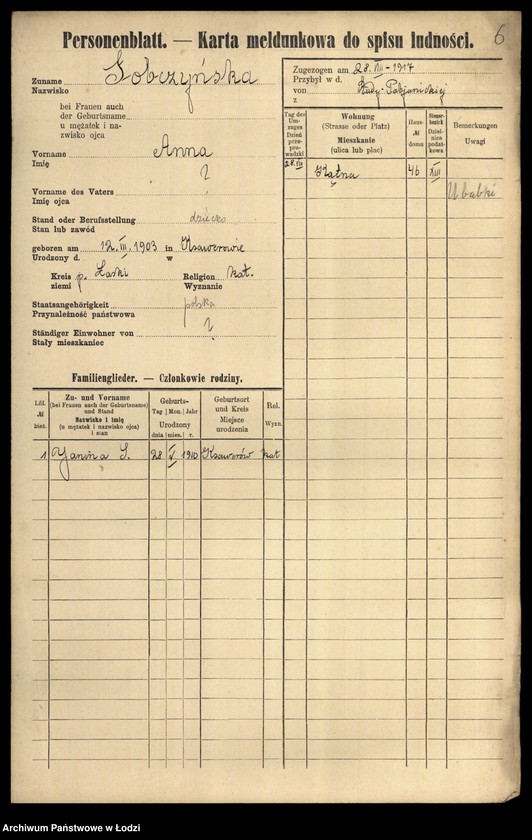 6
Personenblatt. — Karta meldunkowa do spisu ludności.
Zuname Sobczyńska
Nazwisko
bei Frauen auch
der Geburtsname
u mężatek i na-
zwisko ojca
Vorname Anna
Imię
Vorname des Vaters
Imię ojca
Stand oder Berufsstellung dziecko
Stan lub zawód
geboren am 12. III. 1903 in Ksawerowie
Urodzony d. w
Kreis p. Łaski Religion kat.
ziemi Wyznanie
Staatsangehörigkeit polska
Przynależność państwowa
Ständiger Einwohner von
Stały mieszkaniec
Familienglieder. — Członkowie rodziny.
Lfd. № bież.
Zu- und Vorname
(bei Frauen auch der Geburtsname)
und Stand
Nazwisko i imię
(u mężatek i nazwisko ojca)
i stan
Geburts-
Tag Mon. Jahr
Urodzony
dnia mies. r.
Geburtsort
und Kreis
Miejsce
urodzenia
Rel.
Wyzn.
1 Janina S. 28 V 1910 Ksawerów kat
Zugezogen am 28. VIII - 1917
Przybył w d.
von Rudy-Pabjanickiej
z
Tag des
Um-
zuges
Dzień
prze-
pro-
wadzki
Wohnung
(Strasse oder Platz)
Mieszkanie
(ulica lub plac)
Haus-
№
domu
Steuer-
bezirk
Dziel-
nica
podat-
kowa
Bemerkungen
Uwagi
28 VIII Kątna 46 XIII
U babki
Archiwum Państwowe w Łodzi